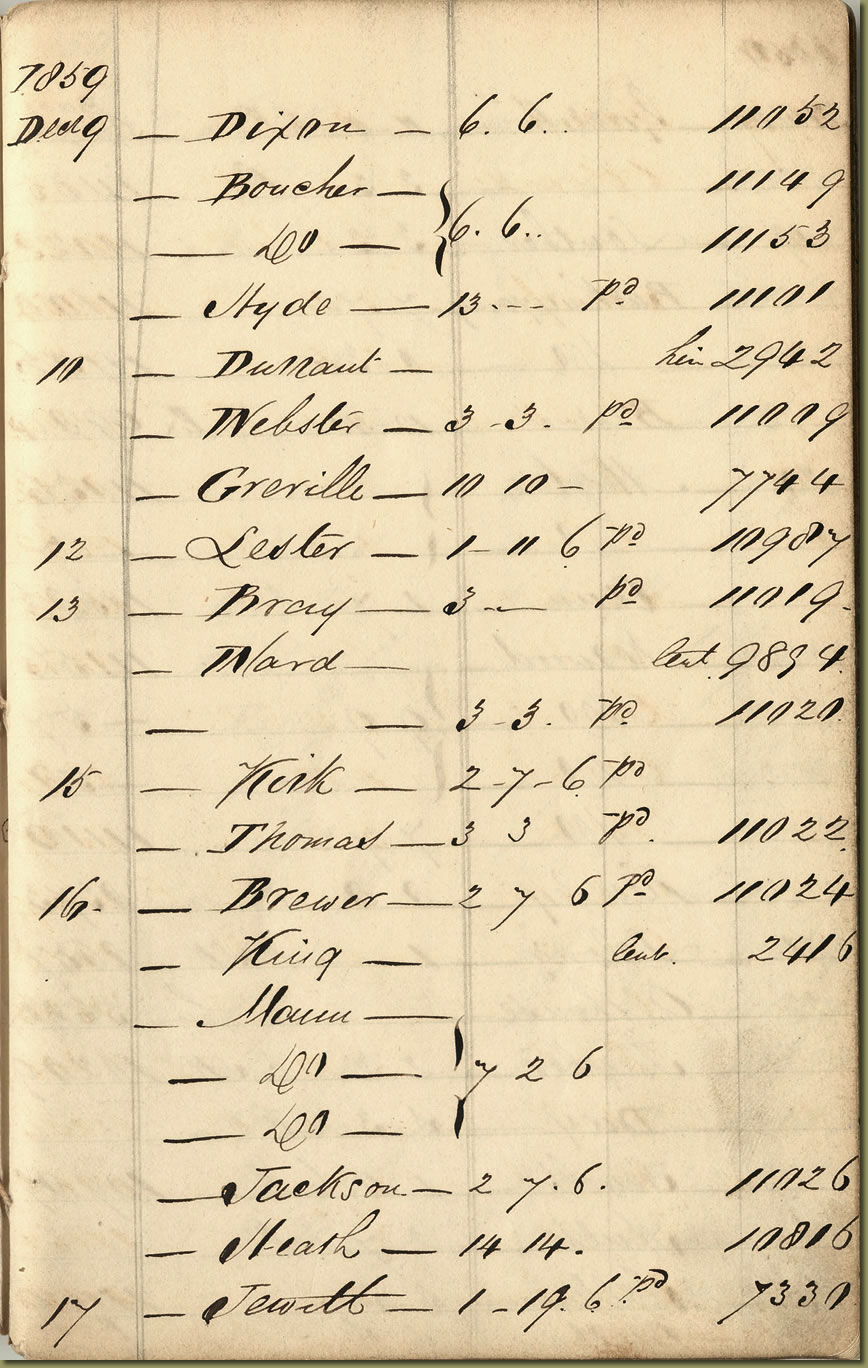 1859
Dec 9 — Dixon — 6. 6.. 11052
— Boucher — 11149
— Do — } 6. 6.. 11153
— Hyde — 13. -- pd 11101
10 — Durrant — 2942
— Webster — 3 - 3. pd 11009
— Greville — 10 10 — 7744
12 — Lester — 1 - 11 6 pd 10987
13 — Bray — 3 -— pd 11019.
— Ward — lent. 9894.
— — 3 - 3. pd 11020.
15 — Kirk — 2 - 7 - 6 pd
— Thomas — 3 3 pd. 11022.
16. — Brewer — 2 7 6 Pd 11024
— King — lent. 2416
— Mann —
— Do — } 7 2 6
— Do —
— Jackson — 2 7. 6. 11026
— Heath — 14 14. 10816
17 — Jewitt — 1 - 19. 6 pd 7330